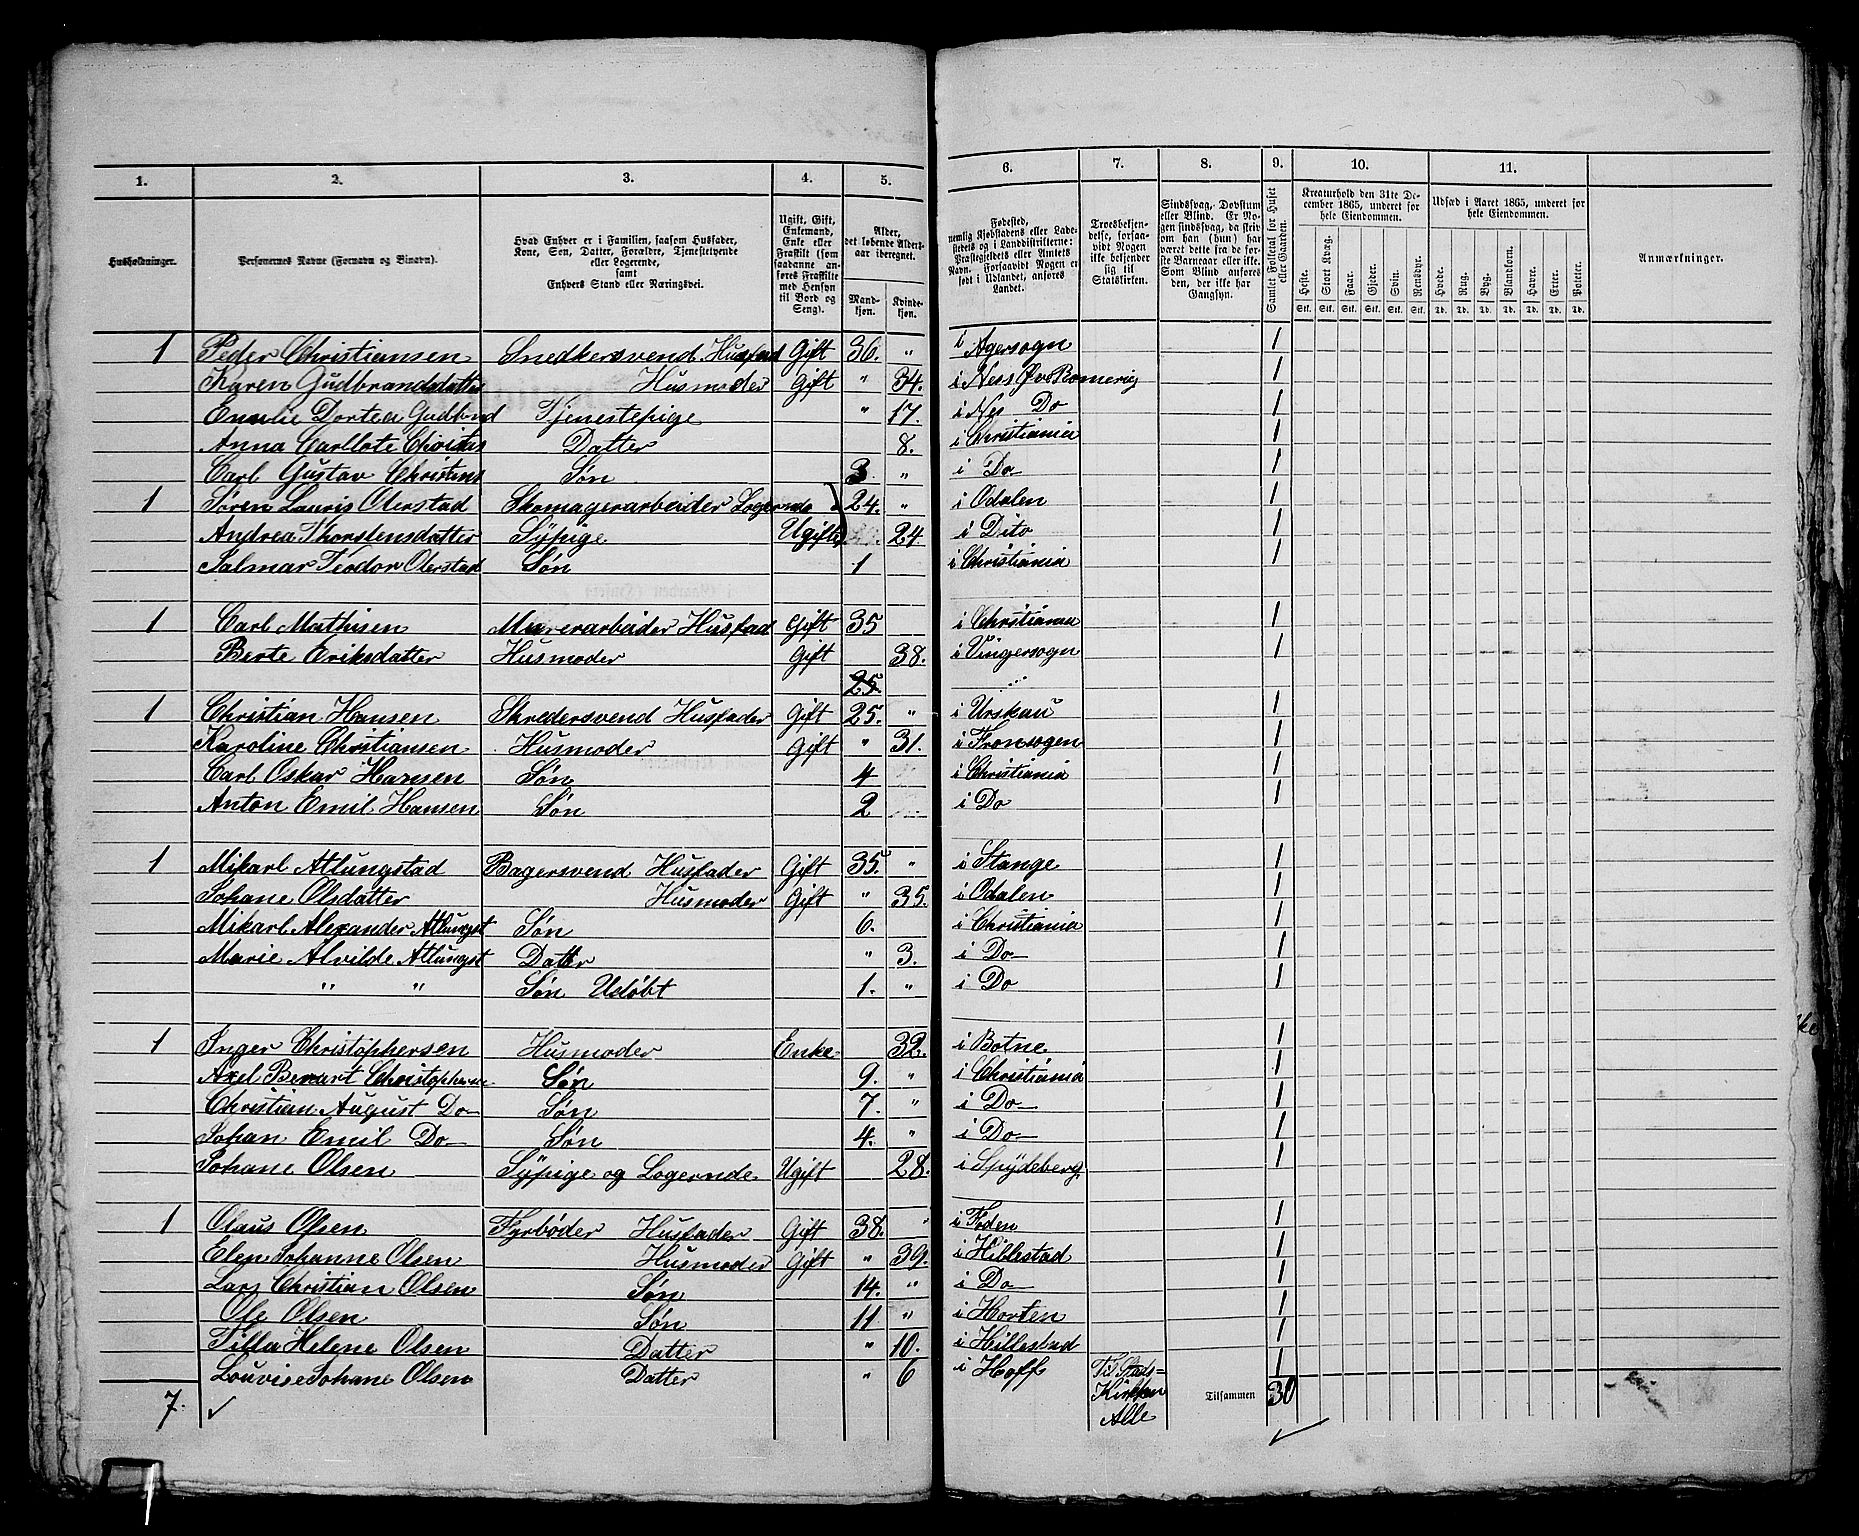 1. 2. 3. 4. 5. 6. 7. 8. 9. 10. 11.
Husholdninger.
Personernes Navne (Fornavn og Binavn).
Hvad Enhver er i Familien, saasom Husfader, Kone, Søn, Datter, Forældre, Tjenestetyende eller Logerende, samt Enhvers Stand eller Næringsvei.
Ugift, Gift, Enkemand, Enke eller Fraskilt (som saadanne anføres Fraskilte med Hensyn til Bord og Seng).
Alder, det løbende Aldersaar iberegnet.
Mandkjøn. Kvindekjøn.
Fødested, nemlig Kjøbstadens eller Ladestedets og i Landdistrikterne: Præstegjeldets eller Amtets Navn. Forsaavidt Nogen er født i Udlandet, anføres Landet.
Troesbekjendelse, forsaavidt Nogen ikke bekjender sig til Statskirken.
Sindssvag, Døvstum eller Blind. Er Nogen sindssvag, da skriv om han (hun) har været dette fra de første Barneaar eller ikke. Som Blind anføres den, der ikke har Gangsyn.
Samlet Folketal for Huset eller Gaarden.
Kreaturhold den 31te December 1865, underet for hele Eiendommen.
Heste. Stort Kvæg. Faar. Gjeder. Svin. Rensdyr.
Stk. Stk. Stk. Stk. Stk. Stk.
Udsæd i Aaret 1865, underet for hele Eiendommen.
Hvede. Rug. Byg. Blandkorn. Havre. Erter. Poteter.
Td. Td. Td. Td. Td. Td. Td.
Anmærkninger.
1 Peder Christiansen Snedkersvend Husfad Gift 36. " i Agersogn 1
Karen Gudbrandsdatter Husmoder Gift " 34. i Ness Øv Romerig 1
Emelie Dortea Gudbrnd Tjenestepige " 17. i Nes Do 1
Anna Carllote Christns Datter 8. i Christiania 1
Carl Gustav Christns Søn 3 " i Do 1
1 Søren Lauris Olerstad Skomagerarbeider Logernde 24. " i Odalen 1
Andrea Thorstensdatter Sÿpige Ugift 24. i Dito 1
Salmar Teodor Olerstad Søn 1 i Christiania 1
1 Carl Mathisen Murerarbeider Husfad Gift 35 i Christiania 1
Berte Eriksdatter Husmoder Gift 38. i Vingersogn 1
25.
1 Christian Hansen Skredersvend Husfader Gift 25. " i Urskau 1
Karoline Christiansen Husmoder Gift " 31. i Fronsogen 1
Carl Oskar Hansen Søn 4 i Christiania 1
Anton Emil Hansen Søn 2 i Do 1
1 Mikarl Atlungstad Bagersvend Husfader Gift 35. " i Stange 1
Johane Olsdatter Husmoder Gift " 35. i Odalen 1
Mikarl Alexander Atlungst Søn 6. i Christiania 1
Marie Alvilde Atlungst Datter " 3. i Do 1
" " Søn Udøbt 1. " i Do 1
1 Inger Christophersen Husmoder Enke 32. i Botne 1
Axel Benart Christophersen Søn 9. " i Christiania 1
Christian August Do Søn 7. " i Do 1
Johan Emil Do Søn 4. " i Do 1
Johane Olsen Sÿpige og Logernde Ugift 28. i Spÿdeberg 1
1 Olaus Olsen Fyrbøder Husfader Gift 38. " i Foden 1
Elen Johanne Olsen Husmoder Gift " 39. i Hillestad 1
Lars Christian Olsen Søn 14. " i Do 1
Ole Olsen Søn 11 " i Horten 1
Tilla Helene Olsen Datter " 10. i Hillestad 1
Louvise Johane Olsen Datter " 6 i Hoff 1
Til Stads=
Kirken
Alle
7. Tilsammen 30